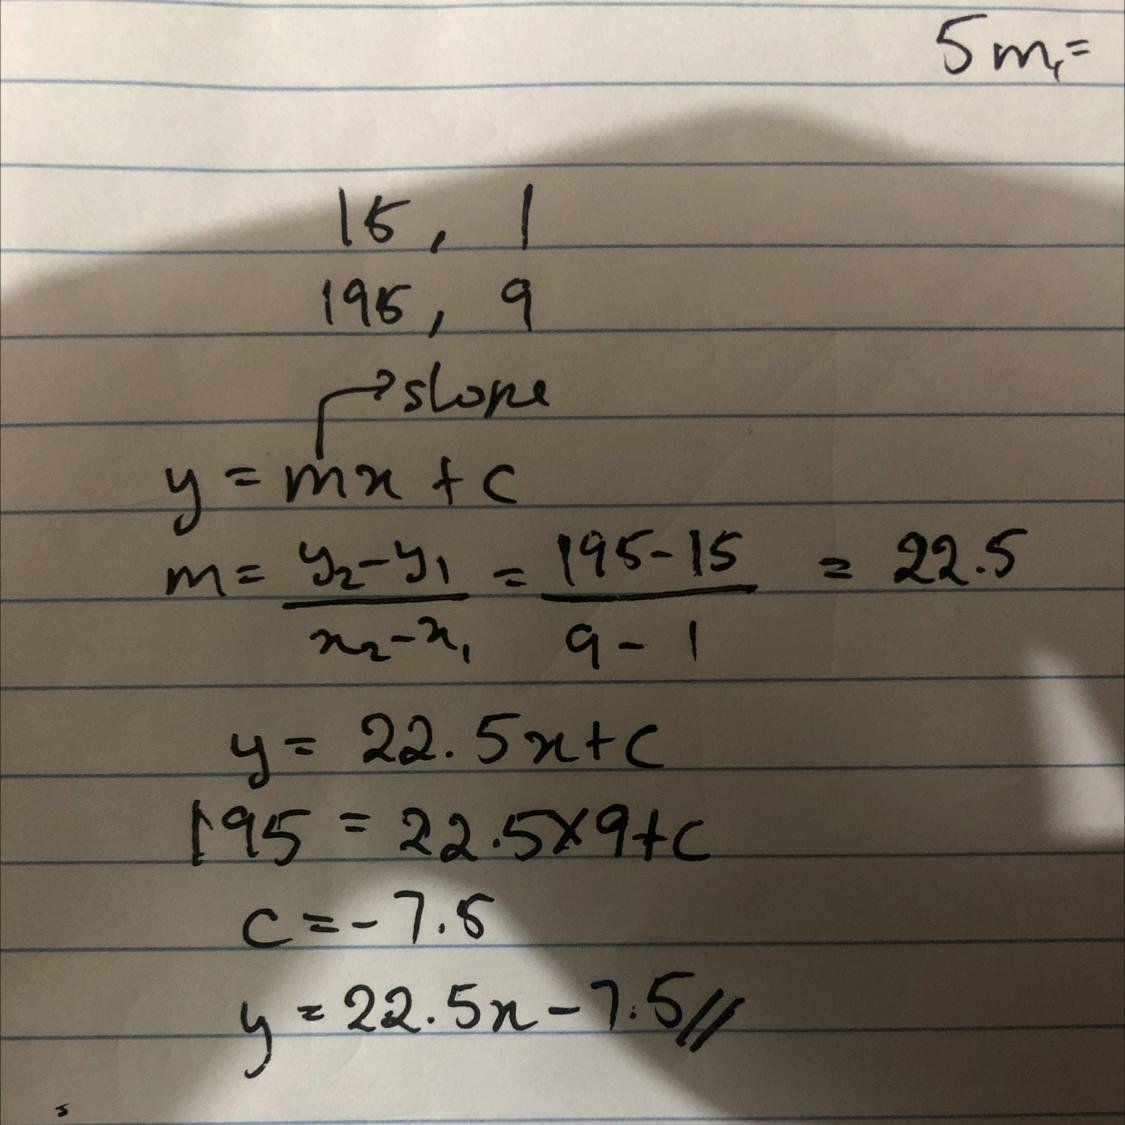 5m₁=
15, 1
195, 9
→slope
y = mx + c
m = y₂-y₁ / x₂-x₁ = 195-15 / 9-1 = 22.5
y = 22.5x+c
195 = 22.5×9+c
c = -7.5
y = 22.5x-7.5//
s